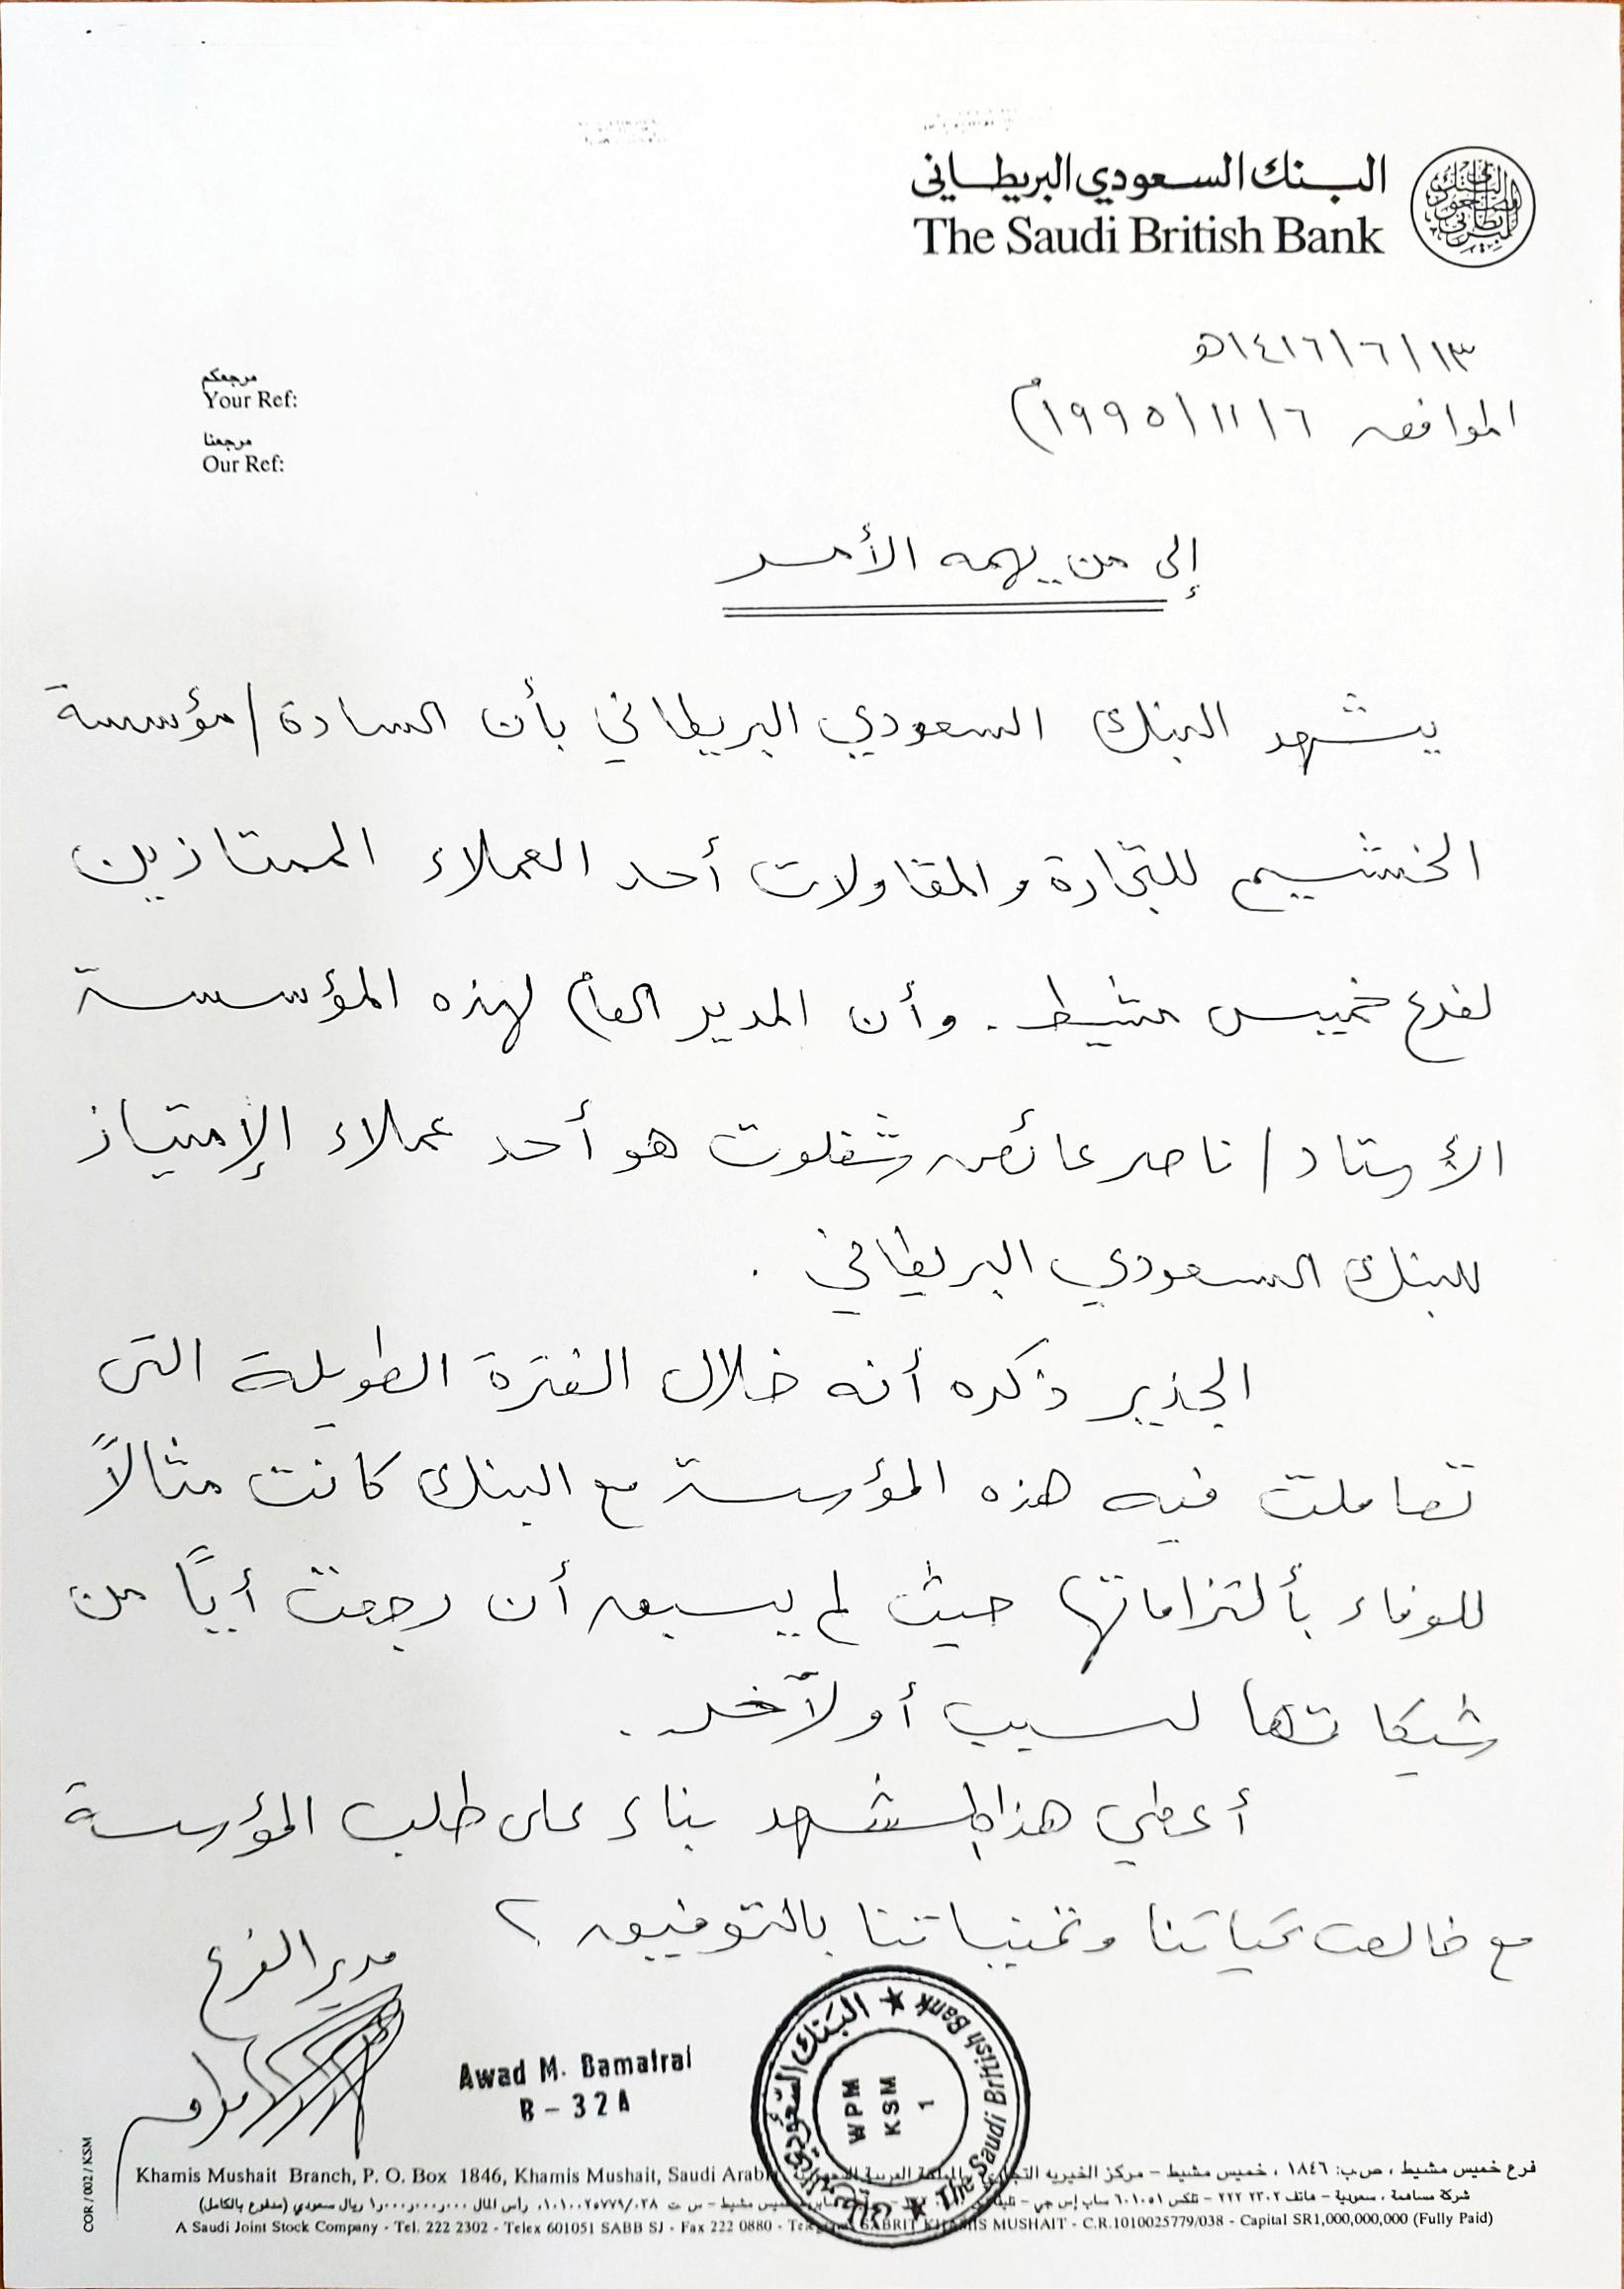 البنك السعودي البريطاني
The Saudi British Bank
١٤١٦/٦/١٣هـ
الموافق ١٩٩٥/١١/٦م
مرجعكم
Your Ref:
مرجعنا
Our Ref:
إلى من يهمه الأمر
يشهد البنك السعودي البريطاني بأن السادة / مؤسسة
الخشيم للتجارة والمقاولات أحد العملاء الممتازين
لفرع خميس مشيط . وأن المدير العام لهذه المؤسسة
الأستاد / ناصر عائض شفلوت هو أحد عملاء الإمتياز
للبنك السعودي البريطاني .
الجذير ذكره أنه خلال الفترة الطويلة التى
تعاملت فيه هذه المؤسسة مع البنك كانت مثالاً
للوفاء بألتزاماتها حيث لم يسبق أن رجعت أيًا من
شيكاتها لسبب أو لآخر .
أعطي هذا المشهد بناء على طلب المؤسسة
مع خالص تحياتنا وتمنياتنا بالتوفيق ؟
مدير الفرع
Awad M. Bamairai
B - 32A
البنك السعودي
The Saudi British Bank
WPM
KSM
1
COR / 002 / KSM
Khamis Mushait Branch, P. O. Box 1846, Khamis Mushait, Saudi Arabia
فرع خميس مشيط ، ص.ب: ١٨٤٦ ، خميس مشيط – مركز الخيريه التجاري
شركة مساهمة ، سعودية – هاتف ٢٣٠٢ ٢٢٢ – تلكس ٦٠١٠٥١ ساب إس جي – خميس مشيط – س ت ١٠١٠٠٢٥٧٧٩/٠٣٨، رأس المال ١٫٠٠٠٫٠٠٠٫٠٠٠ ريال سعودي (مدفوع بالكامل)
A Saudi Joint Stock Company - Tel. 222 2302 - Telex 601051 SABB SJ - Fax 222 0880 - SABRIT KHAMIS MUSHAIT - C.R.1010025779/038 - Capital SR1,000,000,000 (Fully Paid)